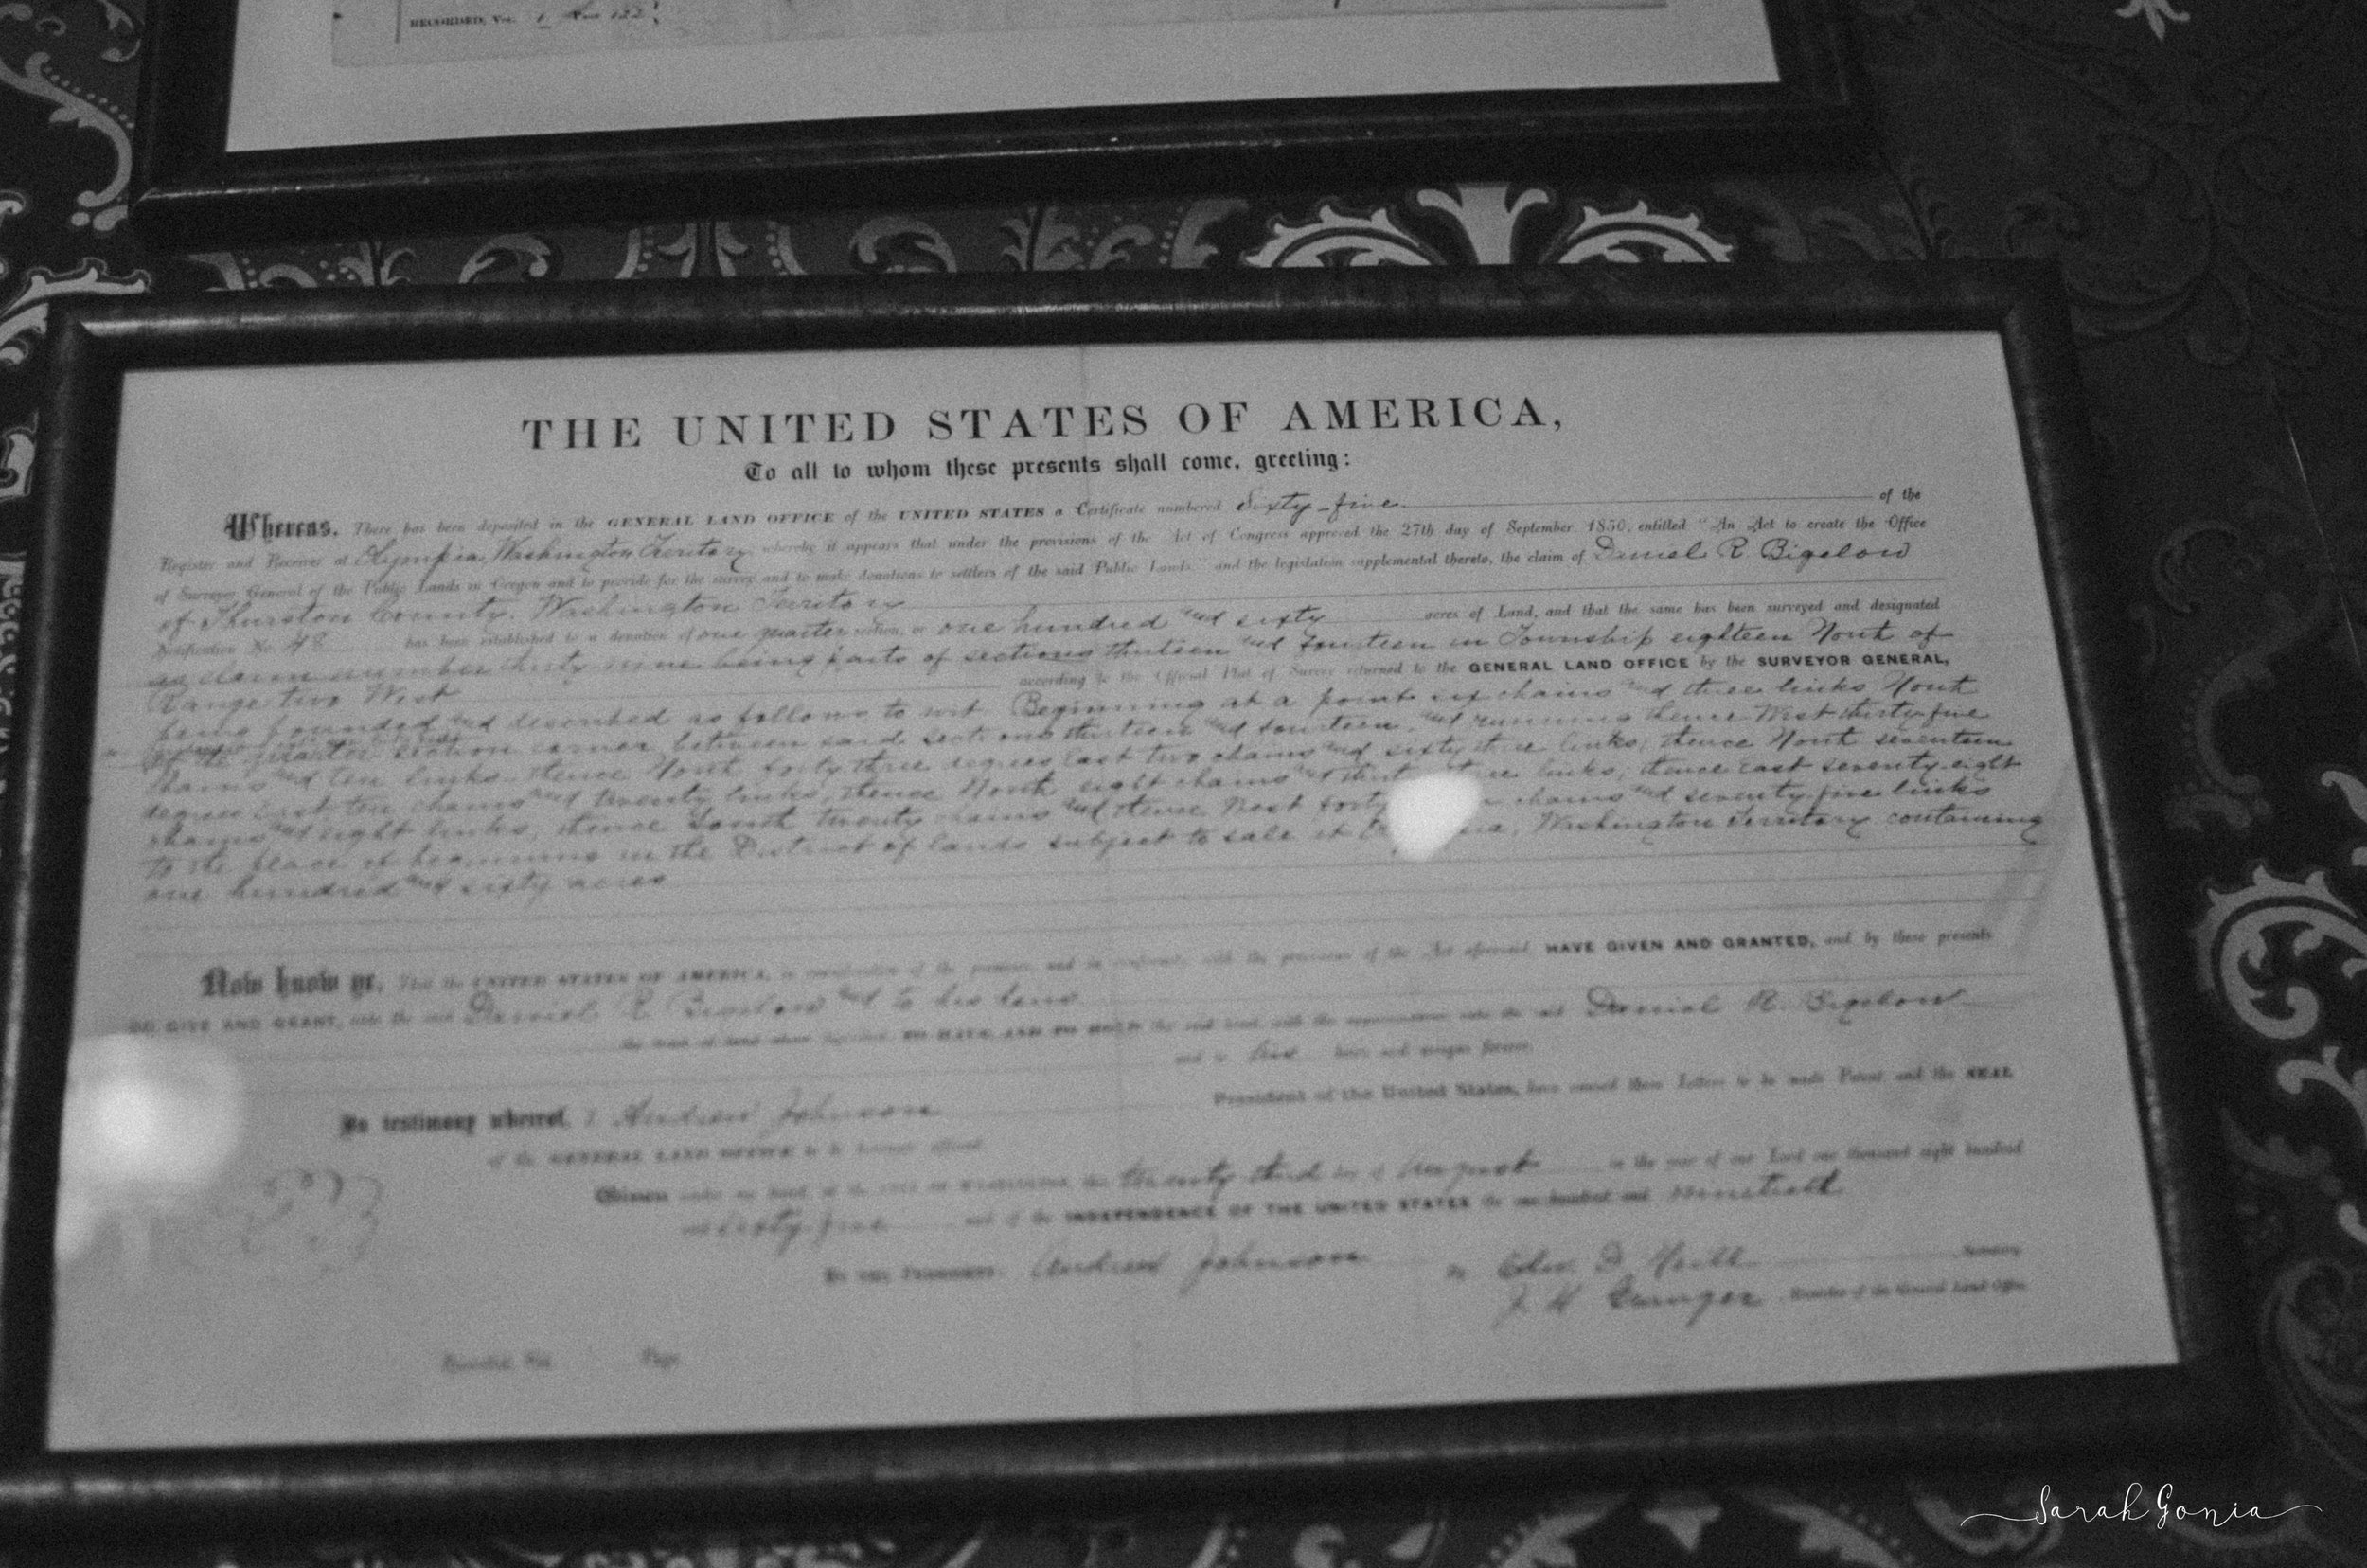 RECORDED, Vol. 1 Page 122
THE UNITED STATES OF AMERICA,
To all to whom these presents shall come, greeting:
Whereas, There has been deposited in the GENERAL LAND OFFICE of the UNITED STATES a Certificate numbered Sixty-five of the
Register and Receiver at Olympia Washington Territory whereby it appears that under the provisions of the Act of Congress approved the 27th day of September 1850, entitled "An Act to create the Office
of Surveyor General of the Public Lands in Oregon and to provide for the survey and to make donations to settlers of the said Public Lands" and the legislation supplemental thereto, the claim of Daniel R Bigelow
of Thurston County, Washington Territory
Notification No. 48 has been established to a donation of one quarter section, or one hundred and sixty acres of Land, and that the same has been surveyed and designated
as claim number thirty nine being parts of sections thirteen and fourteen in Township eighteen North of
Range two West according to the Official Plat of Survey returned to the GENERAL LAND OFFICE by the SURVEYOR GENERAL,
being bounded and described as follows to wit Beginning at a point six chains and three links North
of the quarter section corner between said sections thirteen and fourteen, and running thence West thirty five
chains and ten links, thence North forty three degrees East two chains and sixty three links; thence North seventeen
degrees East ten chains and twenty links, thence North eight chains and links; thence east seventy eight
chains and eight links, thence South twenty chains and thence West forty chains and seventy five links
to the place of beginning in the District of lands subject to sale at Washington Territory containing
one hundred and sixty acres
Now know ye, That the UNITED STATES OF AMERICA, in consideration of the premises, and in conformity with the provisions of the Act aforesaid, HAVE GIVEN AND GRANTED, and by these presents
DO GIVE AND GRANT, unto the said Daniel R Bigelow and to his heirs
the tract of land above described TO HAVE AND TO HOLD the said tract, with the appurtenances unto the said Daniel R. Bigelow
and to his heirs and assigns forever.
In testimony whereof, I Andrew Johnson President of the United States, have caused these Letters to be made Patent and the SEAL
of the GENERAL LAND OFFICE to be hereunto affixed.
Given under my hand, at the CITY OF WASHINGTON, this twenty third day of August in the year of our Lord one thousand eight hundred
and sixty five and of the INDEPENDENCE OF THE UNITED STATES the one hundred and ninetieth
BY THE PRESIDENT: Andrew Johnson By Edw. D Neill Secretary
Recorder of the General Land Office
Recorded, Vol. Page
Sarah Gonia